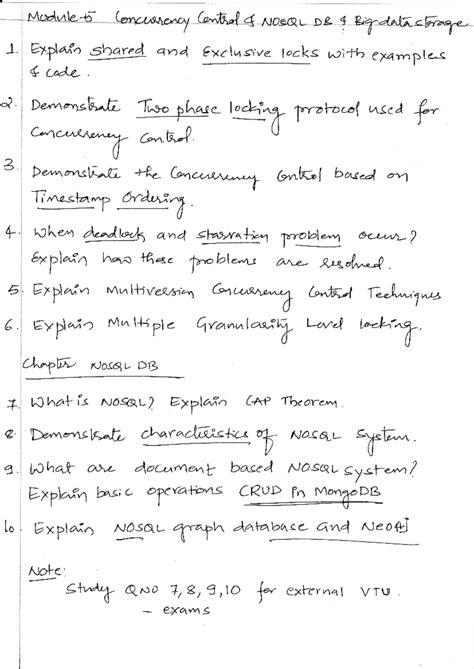 Module-5 Concurrency Control & NOSQL DB & Big data storage
1. Explain shared and Exclusive locks with examples
& code.
2. Demonstrate Two phase locking protocol used for
Concurrency Control.
3. Demonstrate the Concurrency Control based on
Timestamp Ordering.
4. When deadlock and starvation problem occurs?
Explain how these problems are resolved.
5. Explain Multiversion Concurrency Control Techniques
6. Explain Multiple Granularity Level locking.
Chapter NOSQL DB
7. What is NOSQL? Explain CAP Theorem.
8. Demonstrate characteristics of NOSQL System.
9. What are document based NOSQL system?
Explain basic operations CRUD in MongoDB
10. Explain NOSQL graph database and Neo4j
Note:
Study QNO 7, 8, 9, 10 for external VTU.
- exams